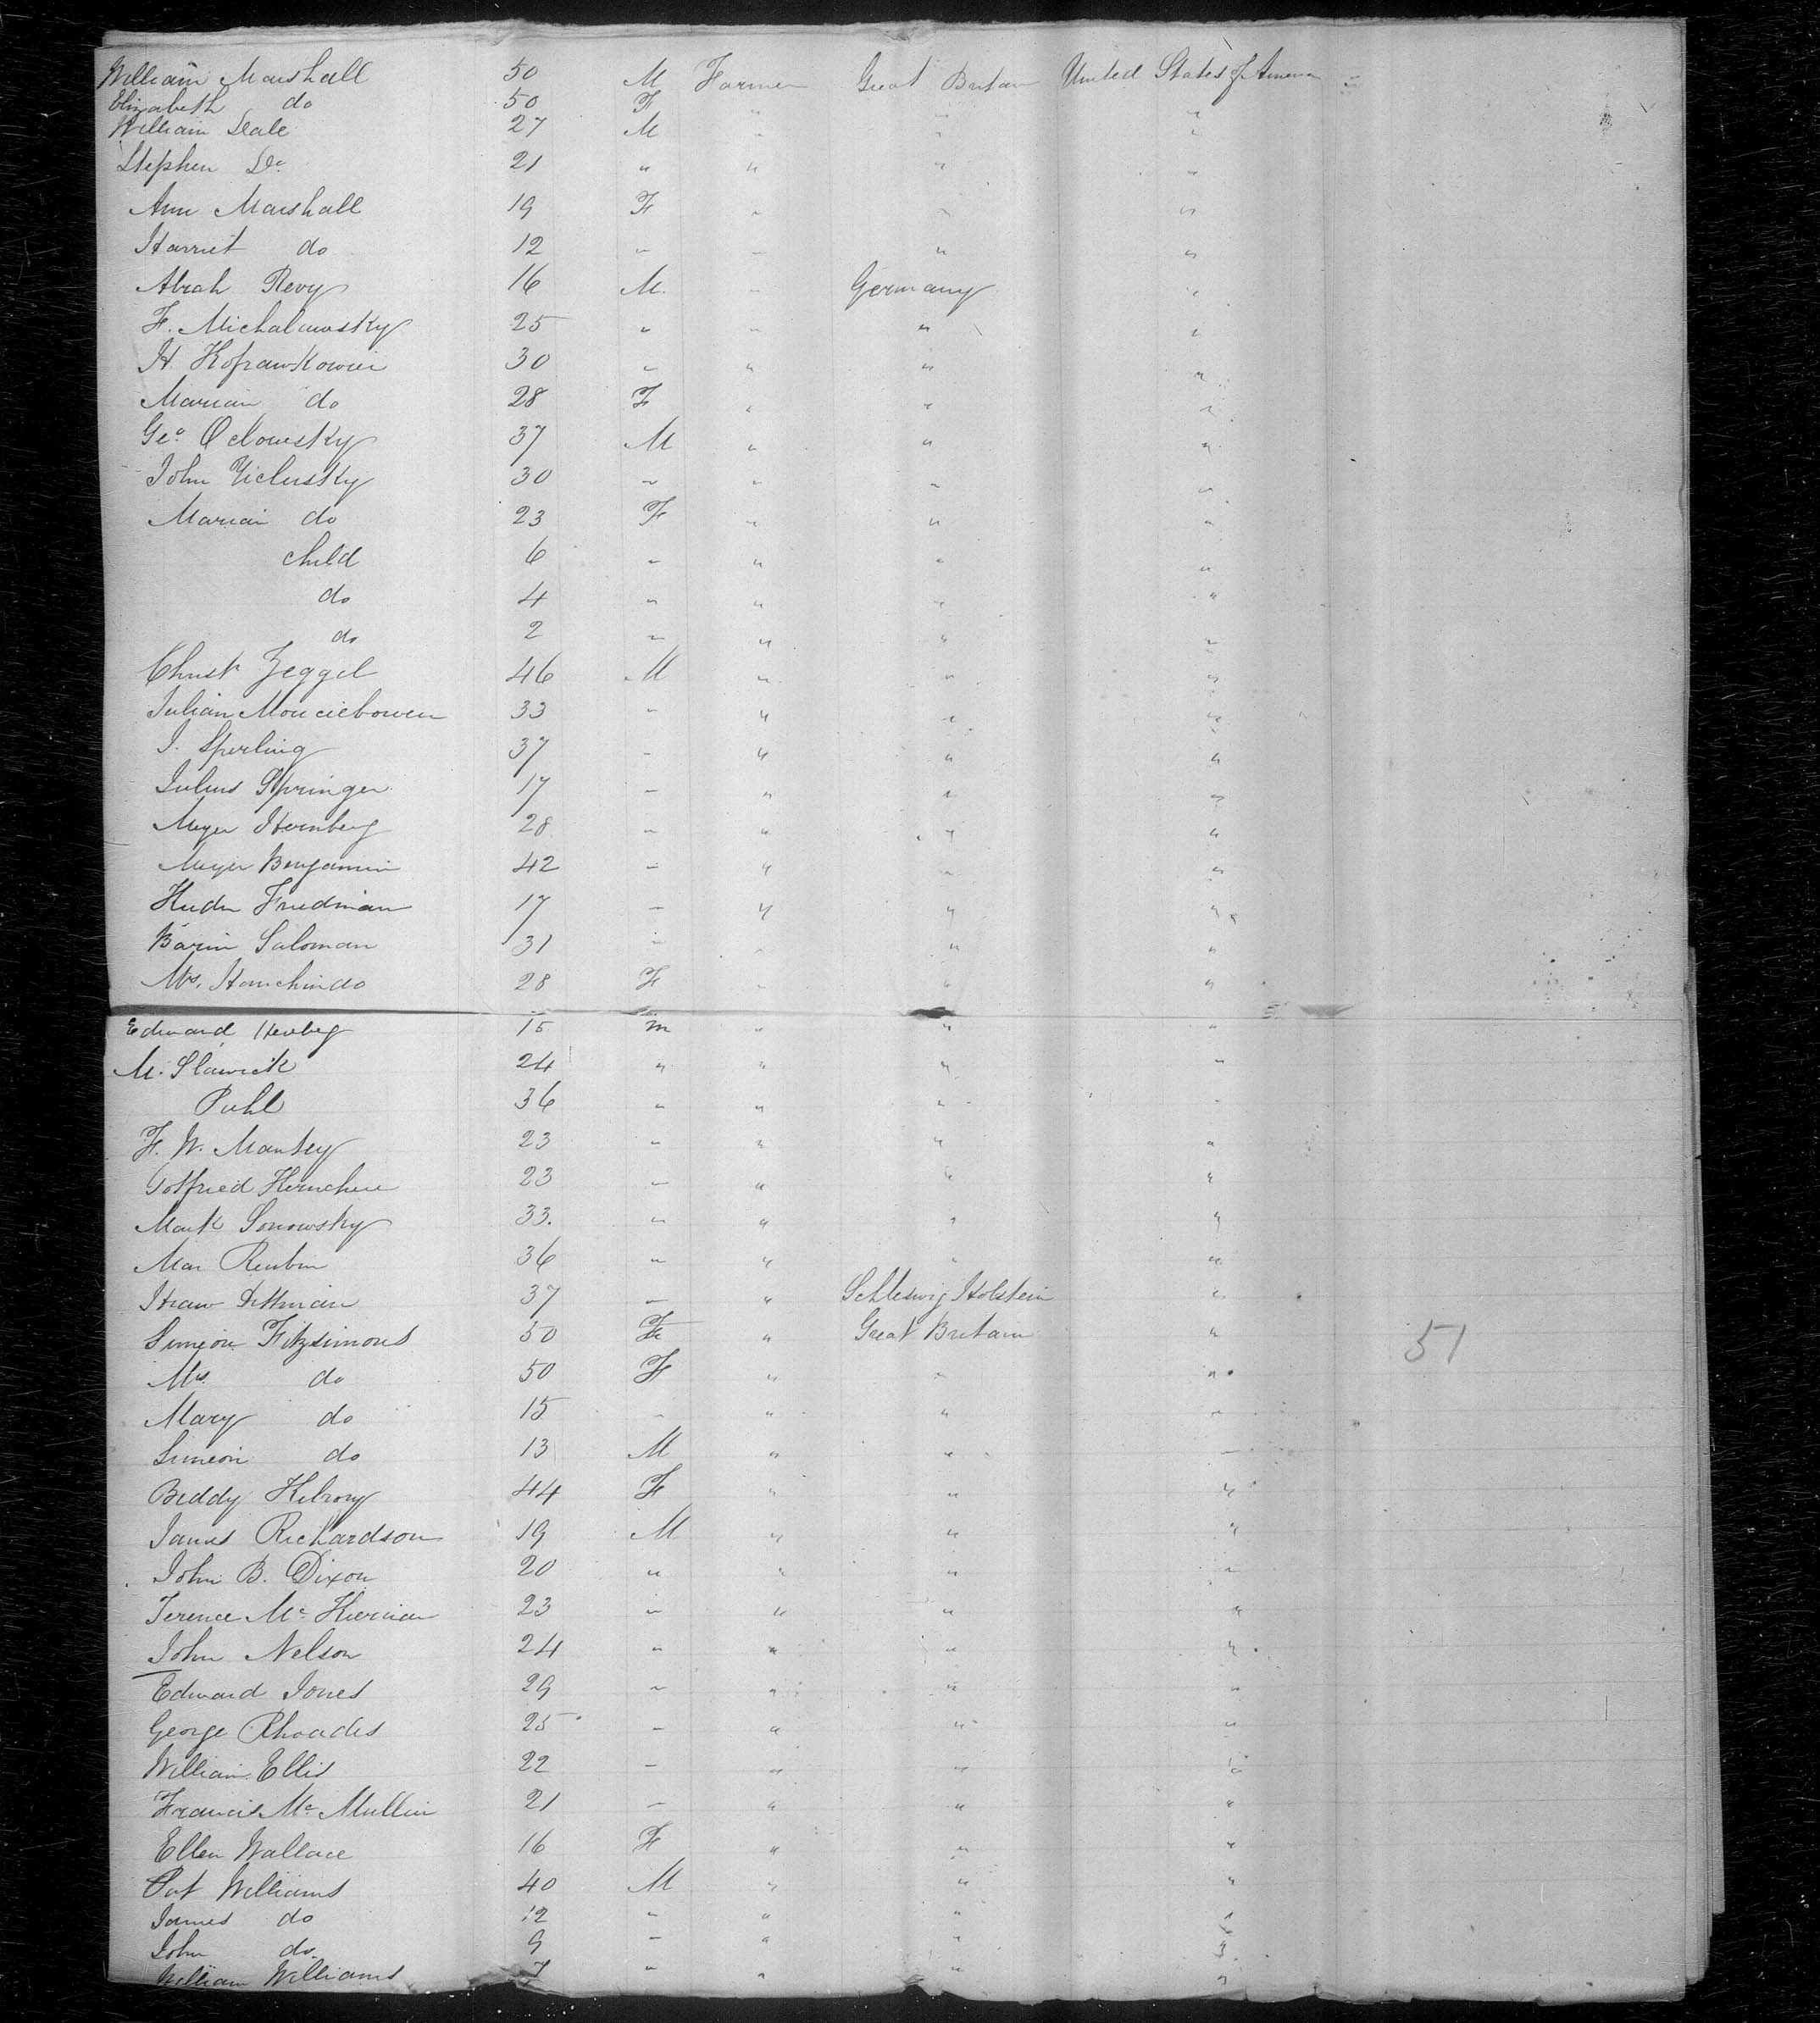 William Marshall 50 M Farmer Great Britain United States of America
Elizabeth do 50 F " " "
William Seale 27 M " " "
Stephen Do 21 " " " "
Ann Marshall 19 F " " "
Harriet do 12 " " " "
Abrah Revy 16 M. " Germany "
F. Michaluwsky 25 " " " "
H. 30 " " " "
Marian do 28 F " " "
Geo. Oclowsky 37 M " " "
John 30 " " " "
Marian do 23 F " " "
child 6 " " " "
do 4 " " " "
do 2 " " " "
Christ Zeggel 46 M " " "
Julian 33 " " " "
J. Sperling 37 " " " "
Julius Springer 17 " " " "
Meyer Sternberg 28 " " " "
Meyer Benjamin 42 " " " "
Friedman 17 " " " "
Saloman 31 " " " "
Mrs. 28 F " " "
Edward 15 m " " "
M. Slawick 24 " " " "
Puhl 36 " " " "
F. W. Mantey 23 " " " "
Gotfried 23 " " " "
Mark Sonowsky 33. " " " "
Reuben 36 " " " "
Dittman 37 " " Schleswig Holstein "
Simeon Fitzsimons 50 F " Great Britain " 51
Mrs do 50 F " " "
Mary do 15 " " " "
Simeon do 13 M " " "
Biddy Kilroy 44 F " " "
James Richardson 19 M " " "
John B. Dixon 20 " " " "
Terence Mc Kiernan 23 " " " "
John Nelson 24 " " " "
Edward Jones 29 " " " "
George Rhoades 25 " " " "
William Ellis 22 " " " "
Francis Mc Mullin 21 " " " "
Ellen Wallace 16 F " " "
Pat Williams 40 M " " "
James do 12 " " " "
John do. 9 " " " "
William Williams 7 " " " "